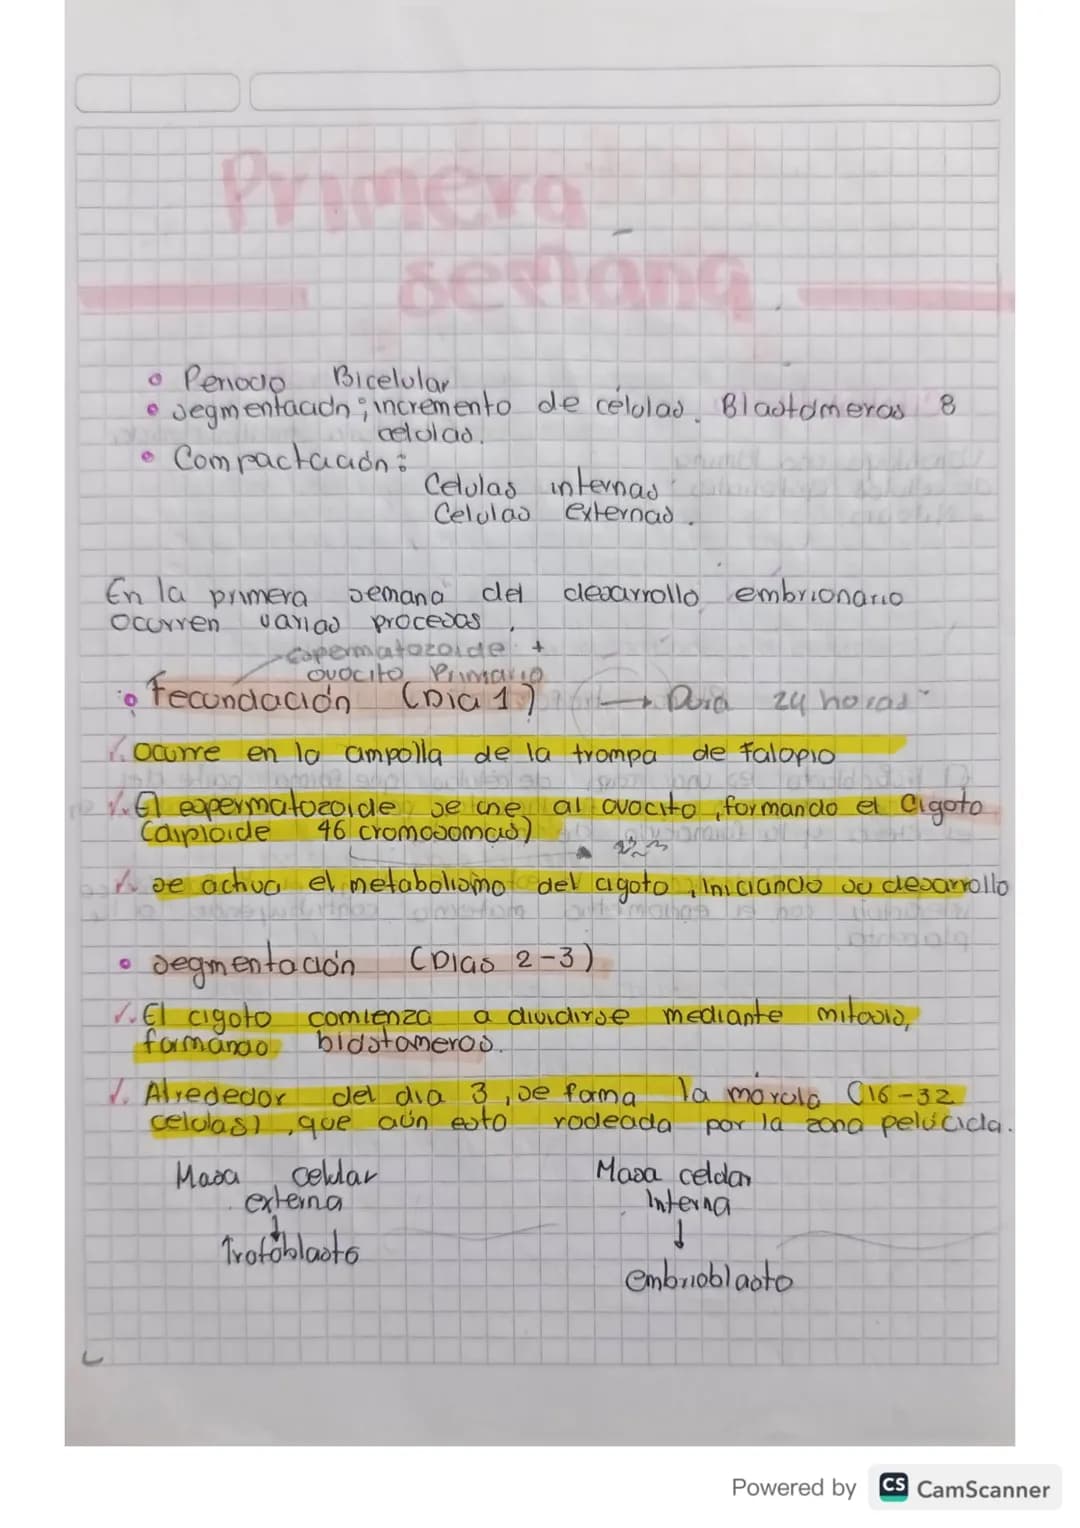 Primera
semana
Periodo Bicelular
Segmentación; incremento de células. Blastómeras 8
celulas.
Compactación:
Celulas internas
Celulas externas.
En la primera semana del desarrollo embrionario
Ocurren varias procesas,
espermatozoide +
ovocito Primario
Fecundación (Dia 1) → Dura 24 horas
ocurre en la ampolla de la trompa de falopio
El espermatozoide se une al ovocito, formando el cigoto
(diploide 46 cromosomas)
se activa el metabolismo del cigoto, iniciando su desarrollo
Segmentación (Dias 2-3)
El cigoto comienza a dividirse mediante mitosis,
formando blastomeros.
Alrededor del dia 3, se forma la morula (16-32
celulas), que aún esta rodeada por la zona pelúcida.
Masa celular Masa celular
externa Interna
↓ ↓
Trofoblasto embrioblasto
Powered by CS CamScanner